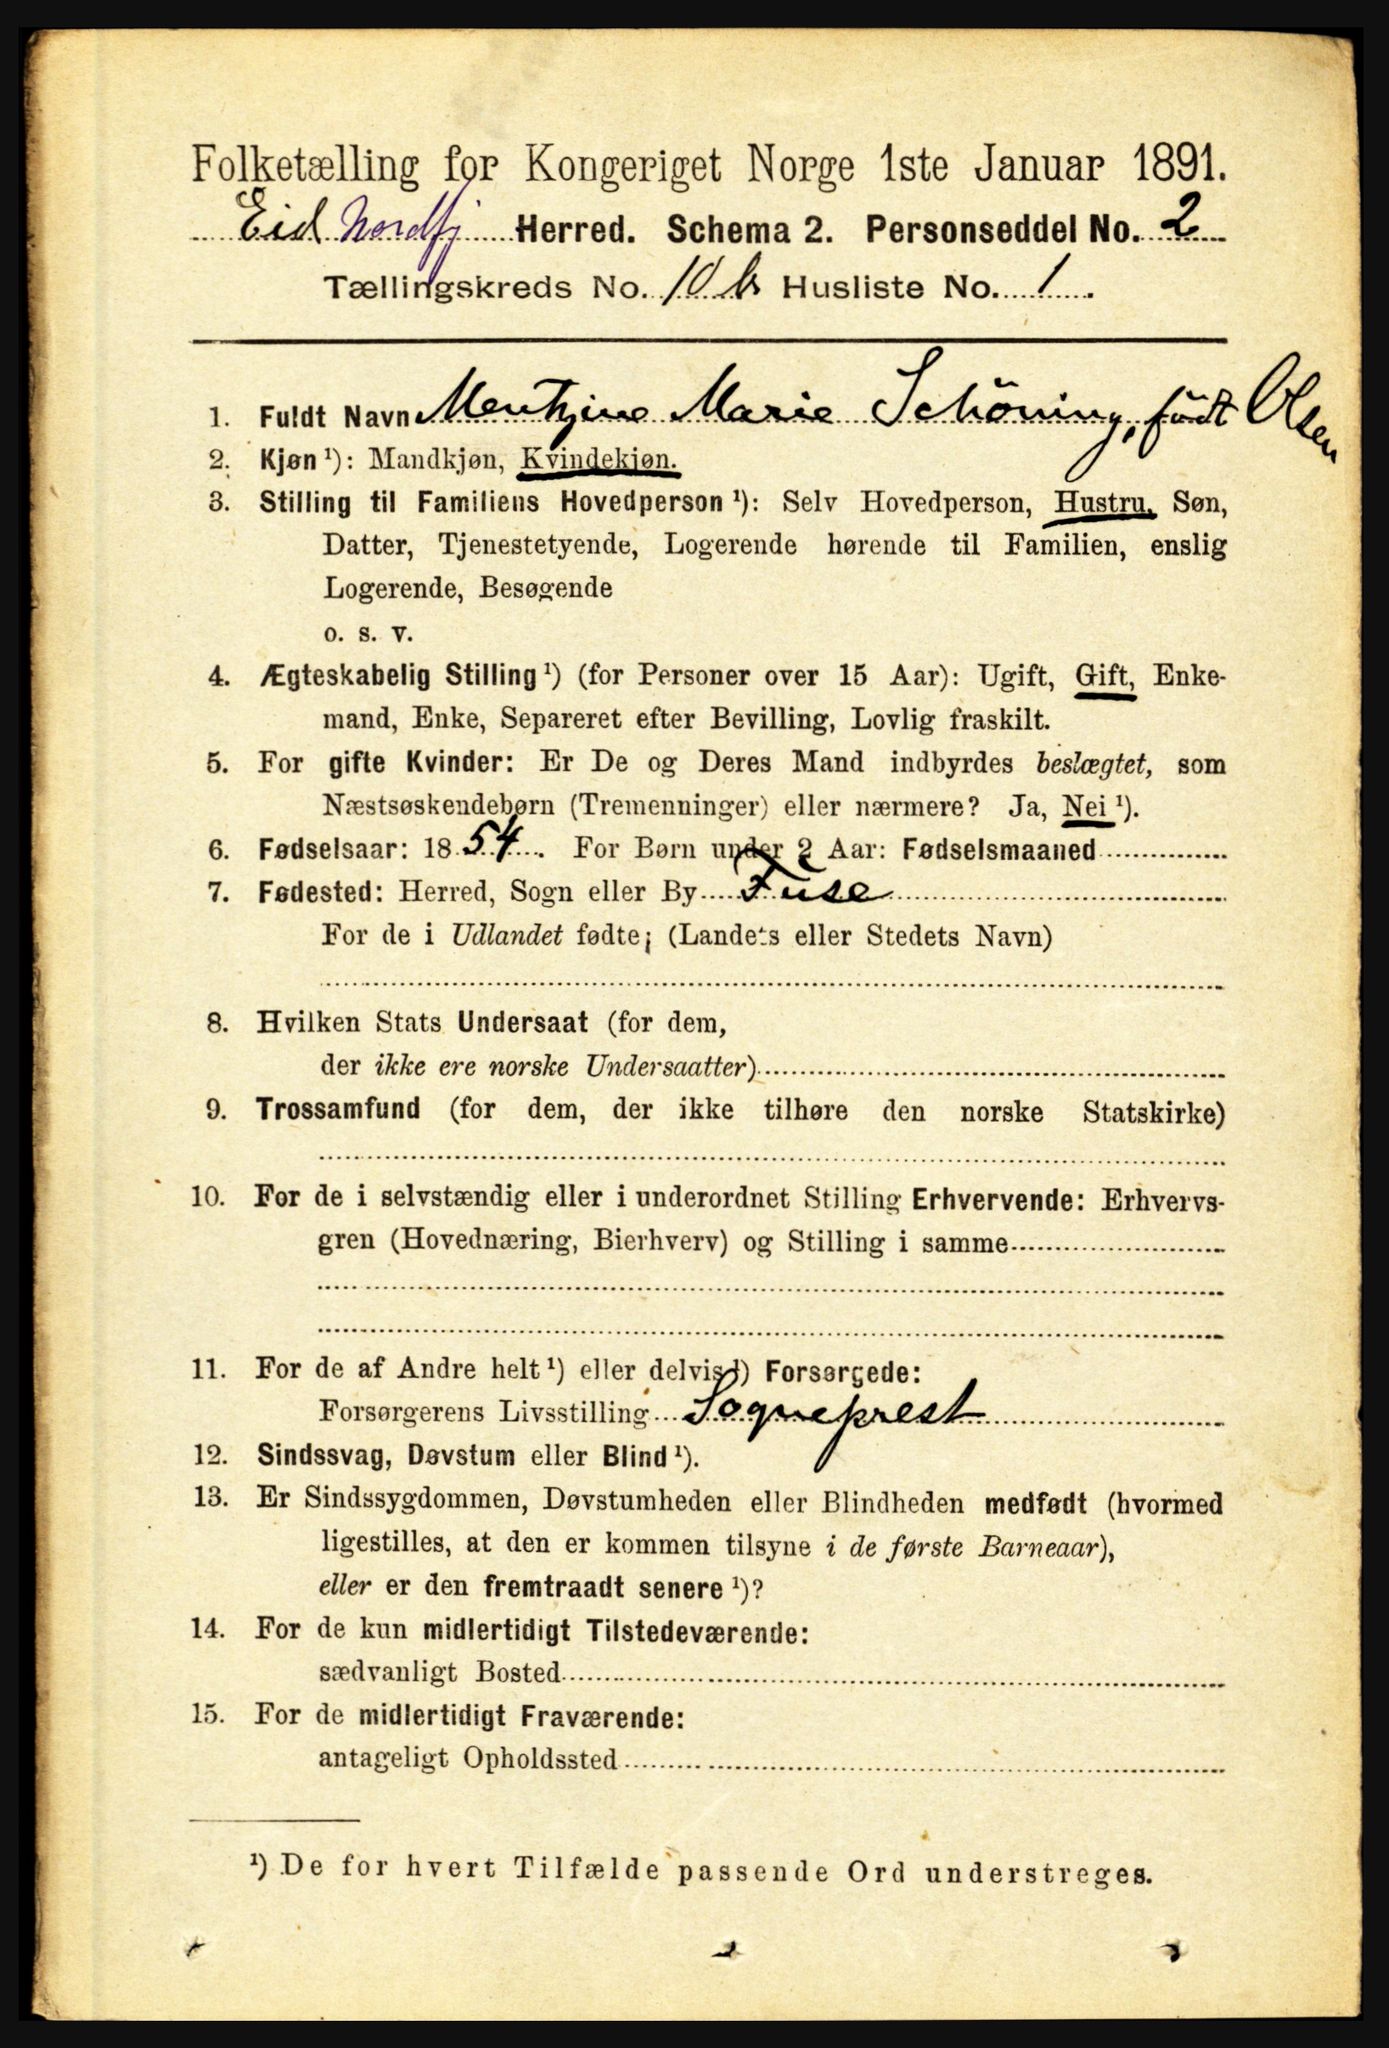 Folketælling for Kongeriget Norge 1ste Januar 1891.
Eid Nordfj Herred. Schema 2. Personseddel No. 2
Tællingskreds No. 10 b Husliste No. 1
1. Fuldt Navn Mentzine Marie Schöning, født Olsen
2. Kjøn ¹): Mandkjøn, Kvindekjøn.
3. Stilling til Familiens Hovedperson ¹): Selv Hovedperson, Hustru, Søn,
Datter, Tjenestetyende, Logerende hørende til Familien, enslig
Logerende, Besøgende
o. s. v.
4. Ægteskabelig Stilling ¹) (for Personer over 15 Aar): Ugift, Gift, Enke-
mand, Enke, Separeret efter Bevilling, Lovlig fraskilt.
5. For gifte Kvinder: Er De og Deres Mand indbyrdes beslægtet, som
Næstsøskendebørn (Tremenninger) eller nærmere? Ja, Nei ¹).
6. Fødselsaar: 1854. For Børn under 2 Aar: Fødselsmaaned
7. Fødested: Herred, Sogn eller By Fuse
For de i Udlandet fødte; (Landets eller Stedets Navn)
8. Hvilken Stats Undersaat (for dem,
der ikke ere norske Undersaatter)
9. Trossamfund (for dem, der ikke tilhøre den norske Statskirke)
10. For de i selvstændig eller i underordnet Stilling Erhvervende: Erhvervs-
gren (Hovednæring, Bierhverv) og Stilling i samme
11. For de af Andre helt ¹) eller delvis ¹) Forsørgede:
Forsørgerens Livsstilling Sogneprest
12. Sindssvag, Døvstum eller Blind ¹).
13. Er Sindssygdommen, Døvstumheden eller Blindheden medfødt (hvormed
ligestilles, at den er kommen tilsyne i de første Barneaar),
eller er den fremtraadt senere ¹)?
14. For de kun midlertidigt Tilstedeværende:
sædvanligt Bosted
15. For de midlertidigt Fraværende:
antageligt Opholdssted
¹) De for hvert Tilfælde passende Ord understreges.